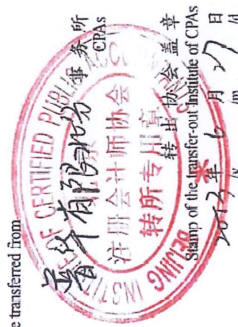 e transferred from
事务所
CPAs
INSTITUTE OF CERTIFIED PUBLIC
BEIJING
注册会计师协会
转所专用章
转出协会盖章
Stamp of the transfer-out Institute of CPAs
2013年6月27日